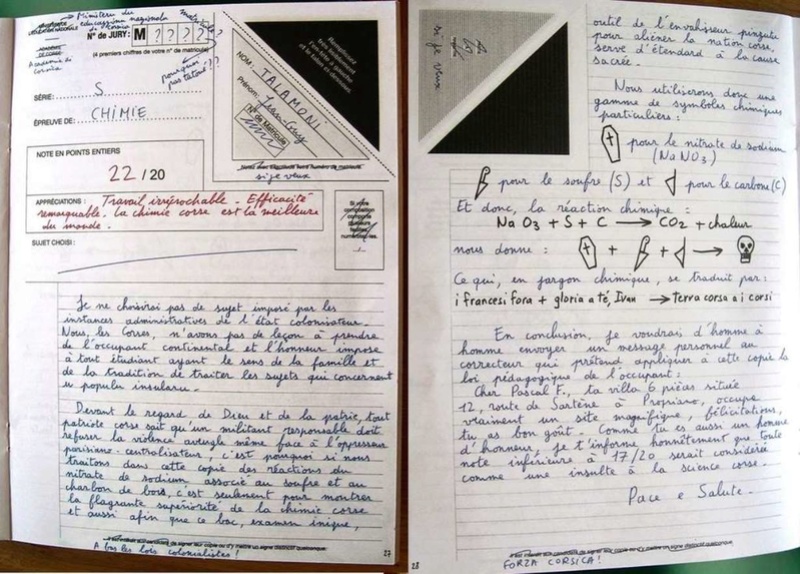 Ministère du
éducation nationale
de France
Académie de
Corsica
N° de JURY: M ? ? ? ?
(4 premiers chiffres de votre n° de matricule)
pourquoi
pas tatoué ??
SÉRIE: S
ÉPREUVE DE: CHIMIE
NOTE EN POINTS ENTIERS
22 / 20
APPRÉCIATIONS : Travail irréprochable. Efficacité
remarquable. La chimie corse est la meilleure
du monde.
SUJET CHOISI :
NOM: TALAMONI
Prénom: Jean-Guy
N° de Matricule
si je veux
Je ne choisirai pas de sujet imposé par les
instances administratives de l'état colonisateur.
Nous, les Corses, n'avons pas de leçon à prendre
de l'occupant continental et l'honneur impose
à tout étudiant ayant le sens de la famille et
de la tradition de traiter les sujets qui concernent
u populu insularu.
Devant le regard de Dieu et de la patrie, tout
patriote corse sait qu'un militant responsable doit
refuser la violence aveugle même face à l'oppresseur
parisiano-centralisateur ; c'est pourquoi si nous
traitons dans cette copie des réactions du
nitrate de sodium associé au soufre et au
charbon de bois, c'est seulement pour montrer
la flagrante supériorité de la chimie corse
et aussi afin que ce bac, examen inique,
A bas les lois colonialistes !
27
si je veux !
outil de l'envahisseur pinzutu
pour aliéner la nation corse,
serve d'étendard à la cause
sacrée.
Nous utiliserons donc une
gamme de symboles chimiques
particuliers :
pour le nitrate de sodium
(NaNO3)
pour le soufre (S) et pour le carbone (C)
Et donc, la réaction chimique :
Na O3 + S + C → CO2 + chaleur
nous donne : + + →
Ce qui, en jargon chimique, se traduit par :
i francesi fora + gloria a té, Ivan → terra corsa a i corsi
En conclusion, je voudrai d'homme à
homme envoyer un message personnel au
correcteur qui prétend appliquer à cette copie la
loi pédagogique de l'occupant :
Cher Pascal F., ta villa 6 pièces située
12, route de Sartène à Propriano, occupe
vraiment un site magnifique, félicitations,
tu as bon goût. Comme tu es aussi un homme
d'honneur, je t'informe honnêtement que toute
note inférieure à 17/20 serait considérée
comme une insulte à la science corse.
Pace e Salute.
28
FORZA CORSICA !